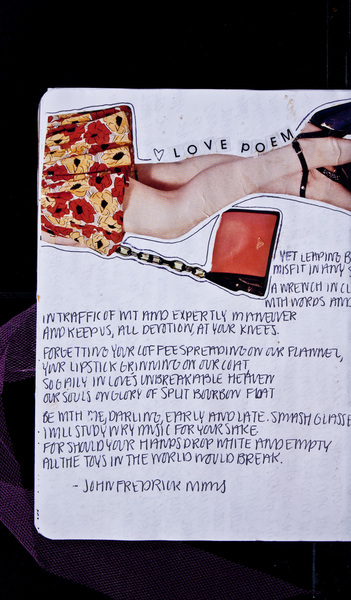 ♡ LOVE POEM
YET LEAPING B
MISFIT IN ANY S
A WRENCH IN CL
WITH WORDS AND
IN TRAFFIC OF WIT AND EXPERTLY MANEUVER
AND KEEP US, ALL DEVOTION, AT YOUR KNEES.
FORGETTING YOUR COFFEE SPREADING ON OUR FLANNEL,
YOUR LIPSTICK GRINNING ON OUR COAT,
SO GAILY IN LOVE'S UNBREAKABLE HEAVEN
OUR SOULS ON GLORY OF SPILT BOURBON FLOAT
BE WITH ME, DARLING, EARLY AND LATE. SMASH GLASSE
I WILL STUDY WRY MUSIC FOR YOUR SAKE
FOR SHOULD YOUR HANDS DROP WHITE AND EMPTY
ALL THE TOYS IN THE WORLD WOULD BREAK.
- JOHN FREDRICK NIMS